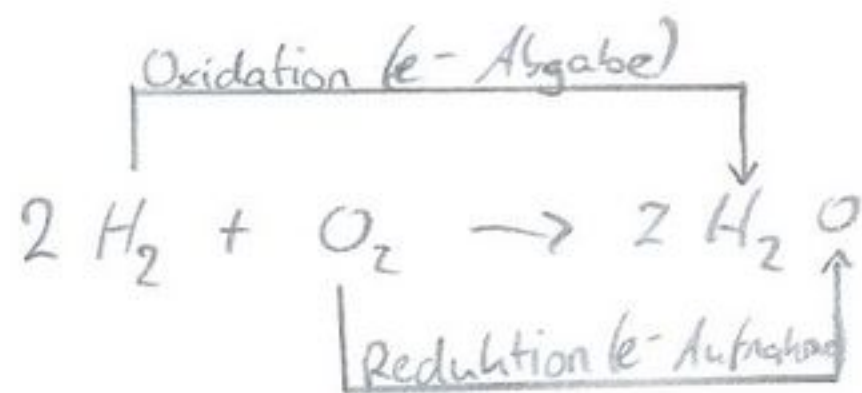 Oxidation (e- Abgabe)
2 H₂ + O₂ → 2 H₂ O
Reduktion (e- Aufnahme